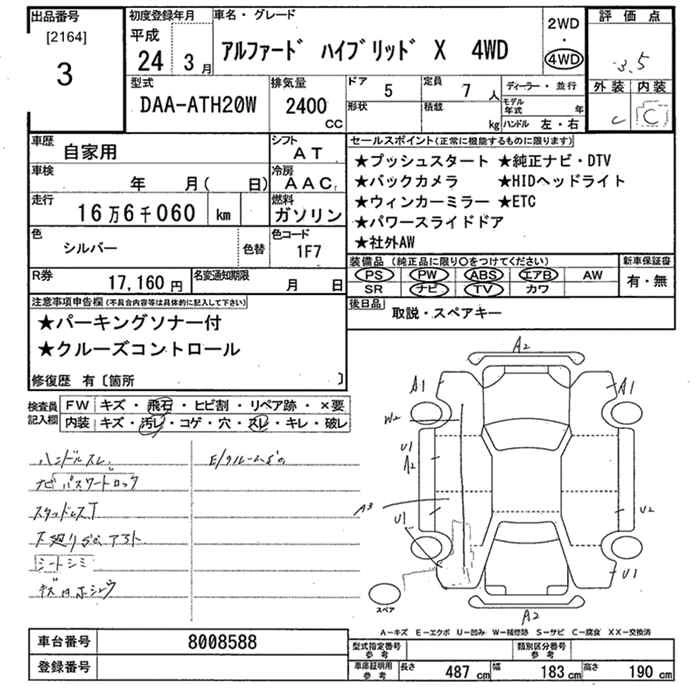 出品番号
[2164]
3
初度登録年月
平成
24 3 月
車名・グレード
アルファード ハイブリッド X 4WD
2WD
・
4WD
評価点
3.5
外装 内装
C C
型式
DAA-ATH20W
排気量
2400
CC
ドア
5
定員
7 人
ディーラー・並行
形状
積載
kg
モデル年式 年
ハンドル 左・右
車歴
自家用
シフト
AT
車検
年 月( 日)
冷房
AAC
走行
16万6千060 km
燃料
ガソリン
色
シルバー
色替
色コード
1F7
R券
17,160 円
名変通知期限
月 日
セールスポイント(正常に機能するものに限ります)
★プッシュスタート ★純正ナビ・DTV
★バックカメラ ★HIDヘッドライト
★ウィンカーミラー ★ETC
★パワースライドドア
★社外AW
装備品 (純正品に限り○をつけてください)
PS PW ABS エアB AW
SR ナビ TV カワ
新車保証書
有・無
後日品
取説・スペアキー
注意事項申告欄(不具合内容等は具体的に記入して下さい)
★パーキングソナー付
★クルーズコントロール
修復歴 有〔箇所 〕
検査員記入欄
FW キズ・飛石・ヒビ割・リペア跡・×要
内装 キズ・汚レ・コゲ・穴・スレ・キレ・破レ
ハンドルスレ
ナビパスワードロック
スタッドレスT
下廻りサビアト
シートシミ
キズ凹ホシュウ
E/gルームサビ
A2
A1 A1
W2
U1
A2
A3
U1
U2
U1
A2
スペア
A-キズ E-エクボ U-凹み W-補修跡 S-サビ C-腐食 XX-交換済
車台番号
8008588
登録番号
型式指定番号参考
類別区分番号参考
車庫証明用参考
長さ 487 cm 幅 183 cm 高さ 190 cm